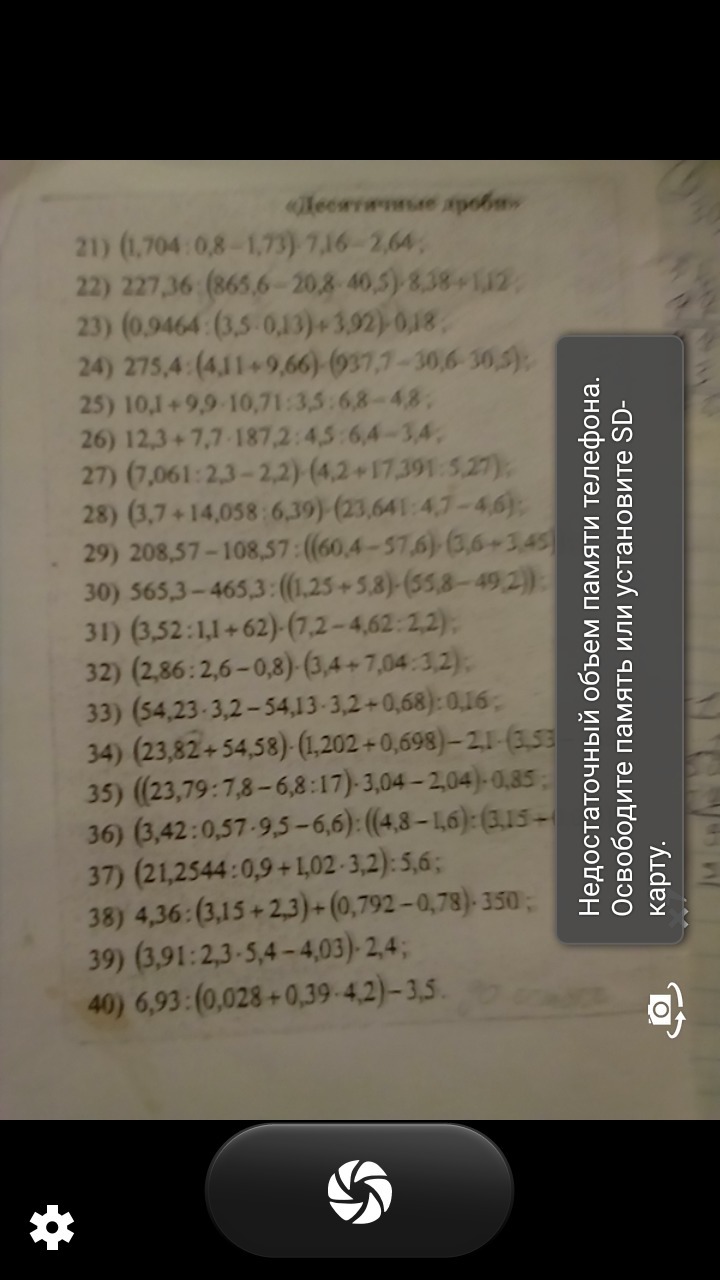 «Десятичные дроби»
21) (1,704:0,8−1,73)·7,16−2,64;
22) 227,36:(865,6−20,8·40,5)·8,38+1,12;
23) (0,9464:(3,5·0,13)+3,92)·0,18;
24) 275,4:(4,11+9,66)·(937,7−30,6·30,5);
25) 10,1+9,9·10,71:3,5:6,8−4,8;
26) 12,3+7,7·187,2:4,5:6,4−3,4;
27) (7,061:2,3−2,2)·(4,2+17,391:5,27);
28) (3,7+14,058:6,39)·(23,641:4,7−4,6);
29) 208,57−108,57:((60,4−57,6)·(3,6+3,45)
30) 565,3−465,3:((1,25+5,8)·(55,8−49,2));
31) (3,52:1,1+62)·(7,2−4,62:2,2);
32) (2,86:2,6−0,8)·(3,4+7,04:3,2);
33) (54,23·3,2−54,13·3,2+0,68):0,16;
34) (23,82+54,58)·(1,202+0,698)−2,1·(3,53
35) ((23,79:7,8−6,8:17)·3,04−2,04)·0,85;
36) (3,42:0,57·9,5−6,6):((4,8−1,6):(3,15+
37) (21,2544:0,9+1,02·3,2):5,6;
38) 4,36:(3,15+2,3)+(0,792−0,78)·350;
39) (3,91:2,3·5,4−4,03)·2,4;
40) 6,93:(0,028+0,39·4,2)−3,5.
Недостаточный объем памяти телефона.
Освободите память или установите SD-
карту.